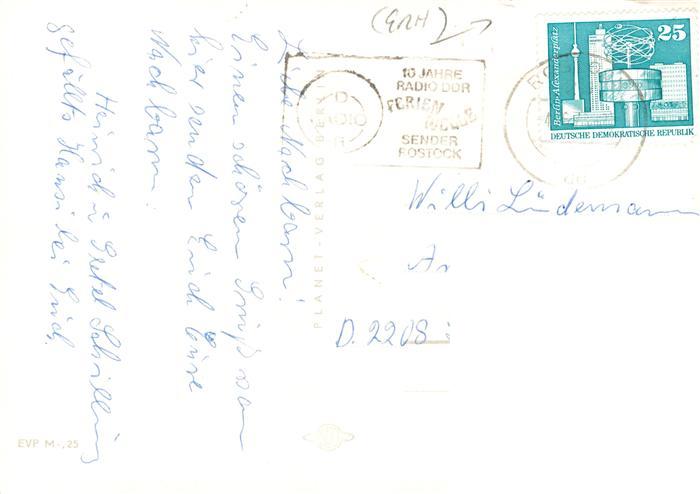 Liebe Nachbarn!
Einen schönen Gruß von
hier senden Euch Eure
Nachbarn.
Heinrich u Gretel Schilling
gefällts Hansi bei Euch.
(GRH)
10 JAHRE
RADIO DDR
FERIEN
WELLE
SENDER
ROSTOCK
25
Berlin-Alexanderplatz
DEUTSCHE DEMOKRATISCHE REPUBLIK
PLANET-VERLAG BERLIN
Willi Lüdemann
An
D. 2208
EVP M -,25